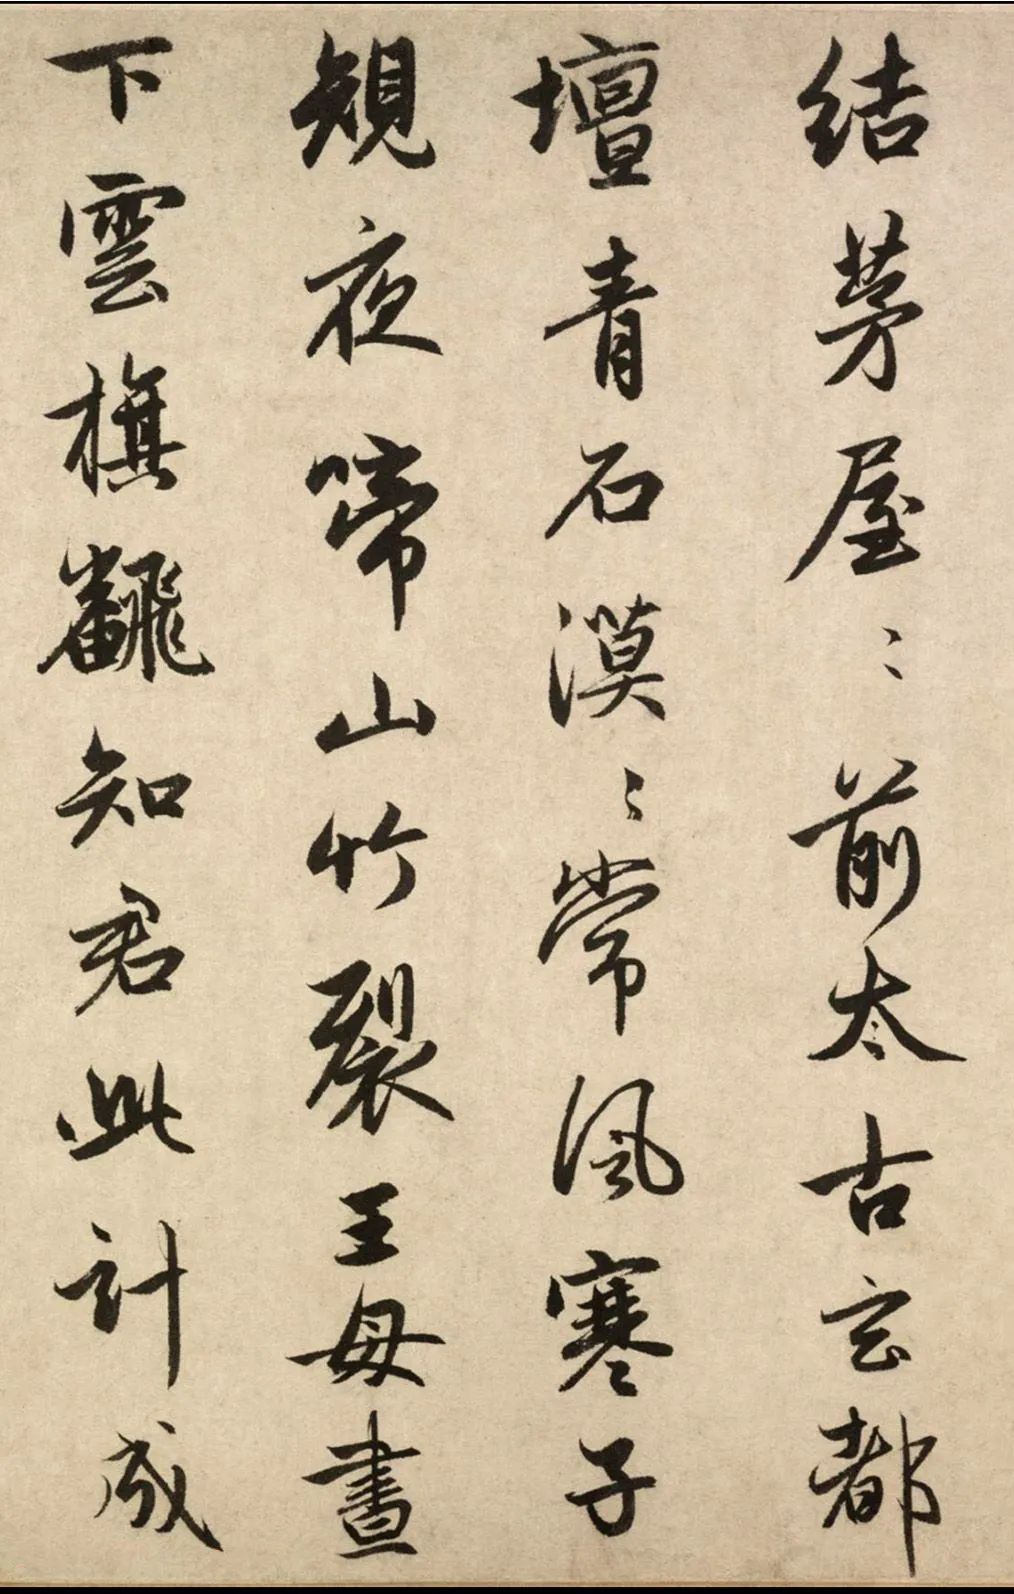 结茅屋〻前太古玄都
壇青石漠〻常風寒子
規夜啼山竹裂王母晝
下雲旗翻知君此計成